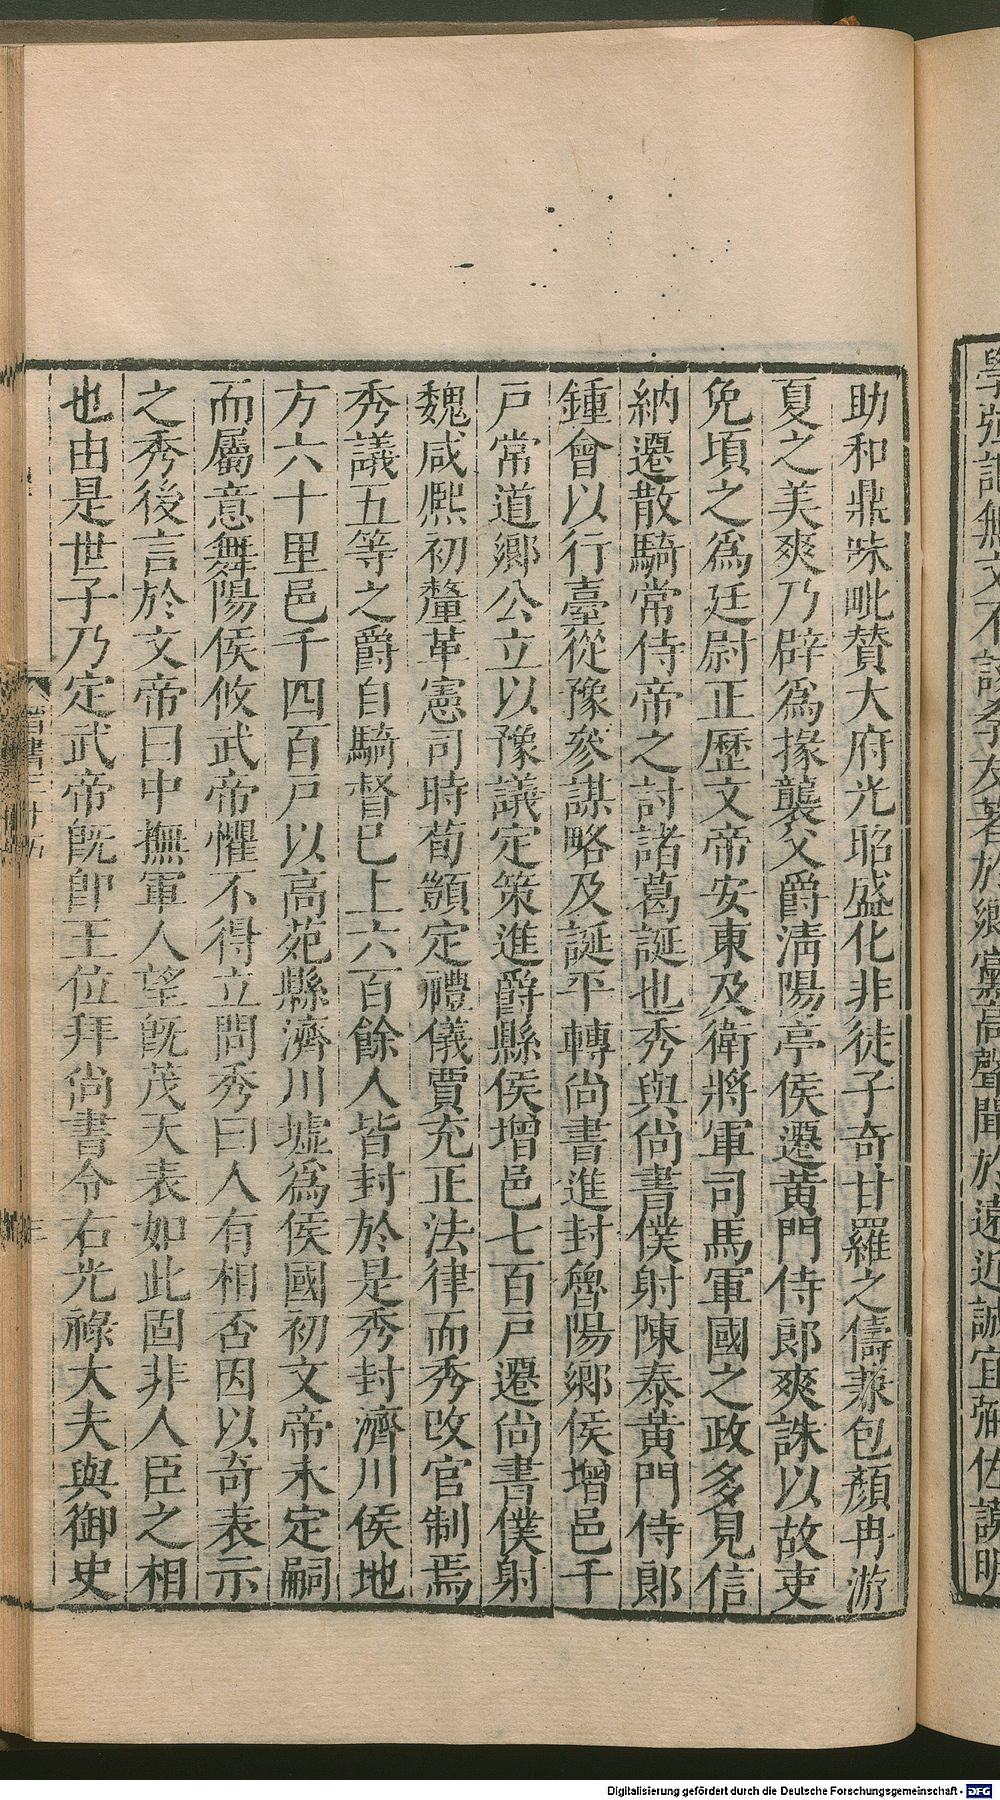 學弱記無文不該孝友著於鄉黨高聲聞於遠近誠宜弼佐謨明
助和鼎味毗贊大府光昭盛化非徒子奇甘羅之儔兼包顏冉游
夏之美爽乃辟爲掾襲父爵淸陽亭侯遷黃門侍郎爽誅以故吏
免頃之爲廷尉正歷文帝安東及衛將軍司馬軍國之政多見信
納遷散騎常侍帝之討諸葛誕也秀與尚書僕射陳泰黃門侍郎
鍾會以行臺從豫參謀略及誕平轉尚書進封魯陽鄉侯增邑千
戸常道鄉公立以豫議定策進爵縣侯增邑七百戸遷尚書僕射
魏咸熙初釐革憲司時荀顗定禮儀賈充正法律而秀改官制焉
秀議五等之爵自騎督已上六百餘人皆封於是秀封濟川侯地
方六十里邑千四百戸以高苑縣濟川墟爲侯國初文帝未定嗣
而屬意舞陽侯攸武帝懼不得立問秀曰人有相否因以奇表示
之秀後言於文帝曰中撫軍人望旣茂天表如此固非人臣之相
也由是世子乃定武帝旣卽王位拜尚書令右光祿大夫與御史
晉書三十五
三
Digitalisierung gefördert durch die Deutsche Forschungsgemeinschaft - DFG